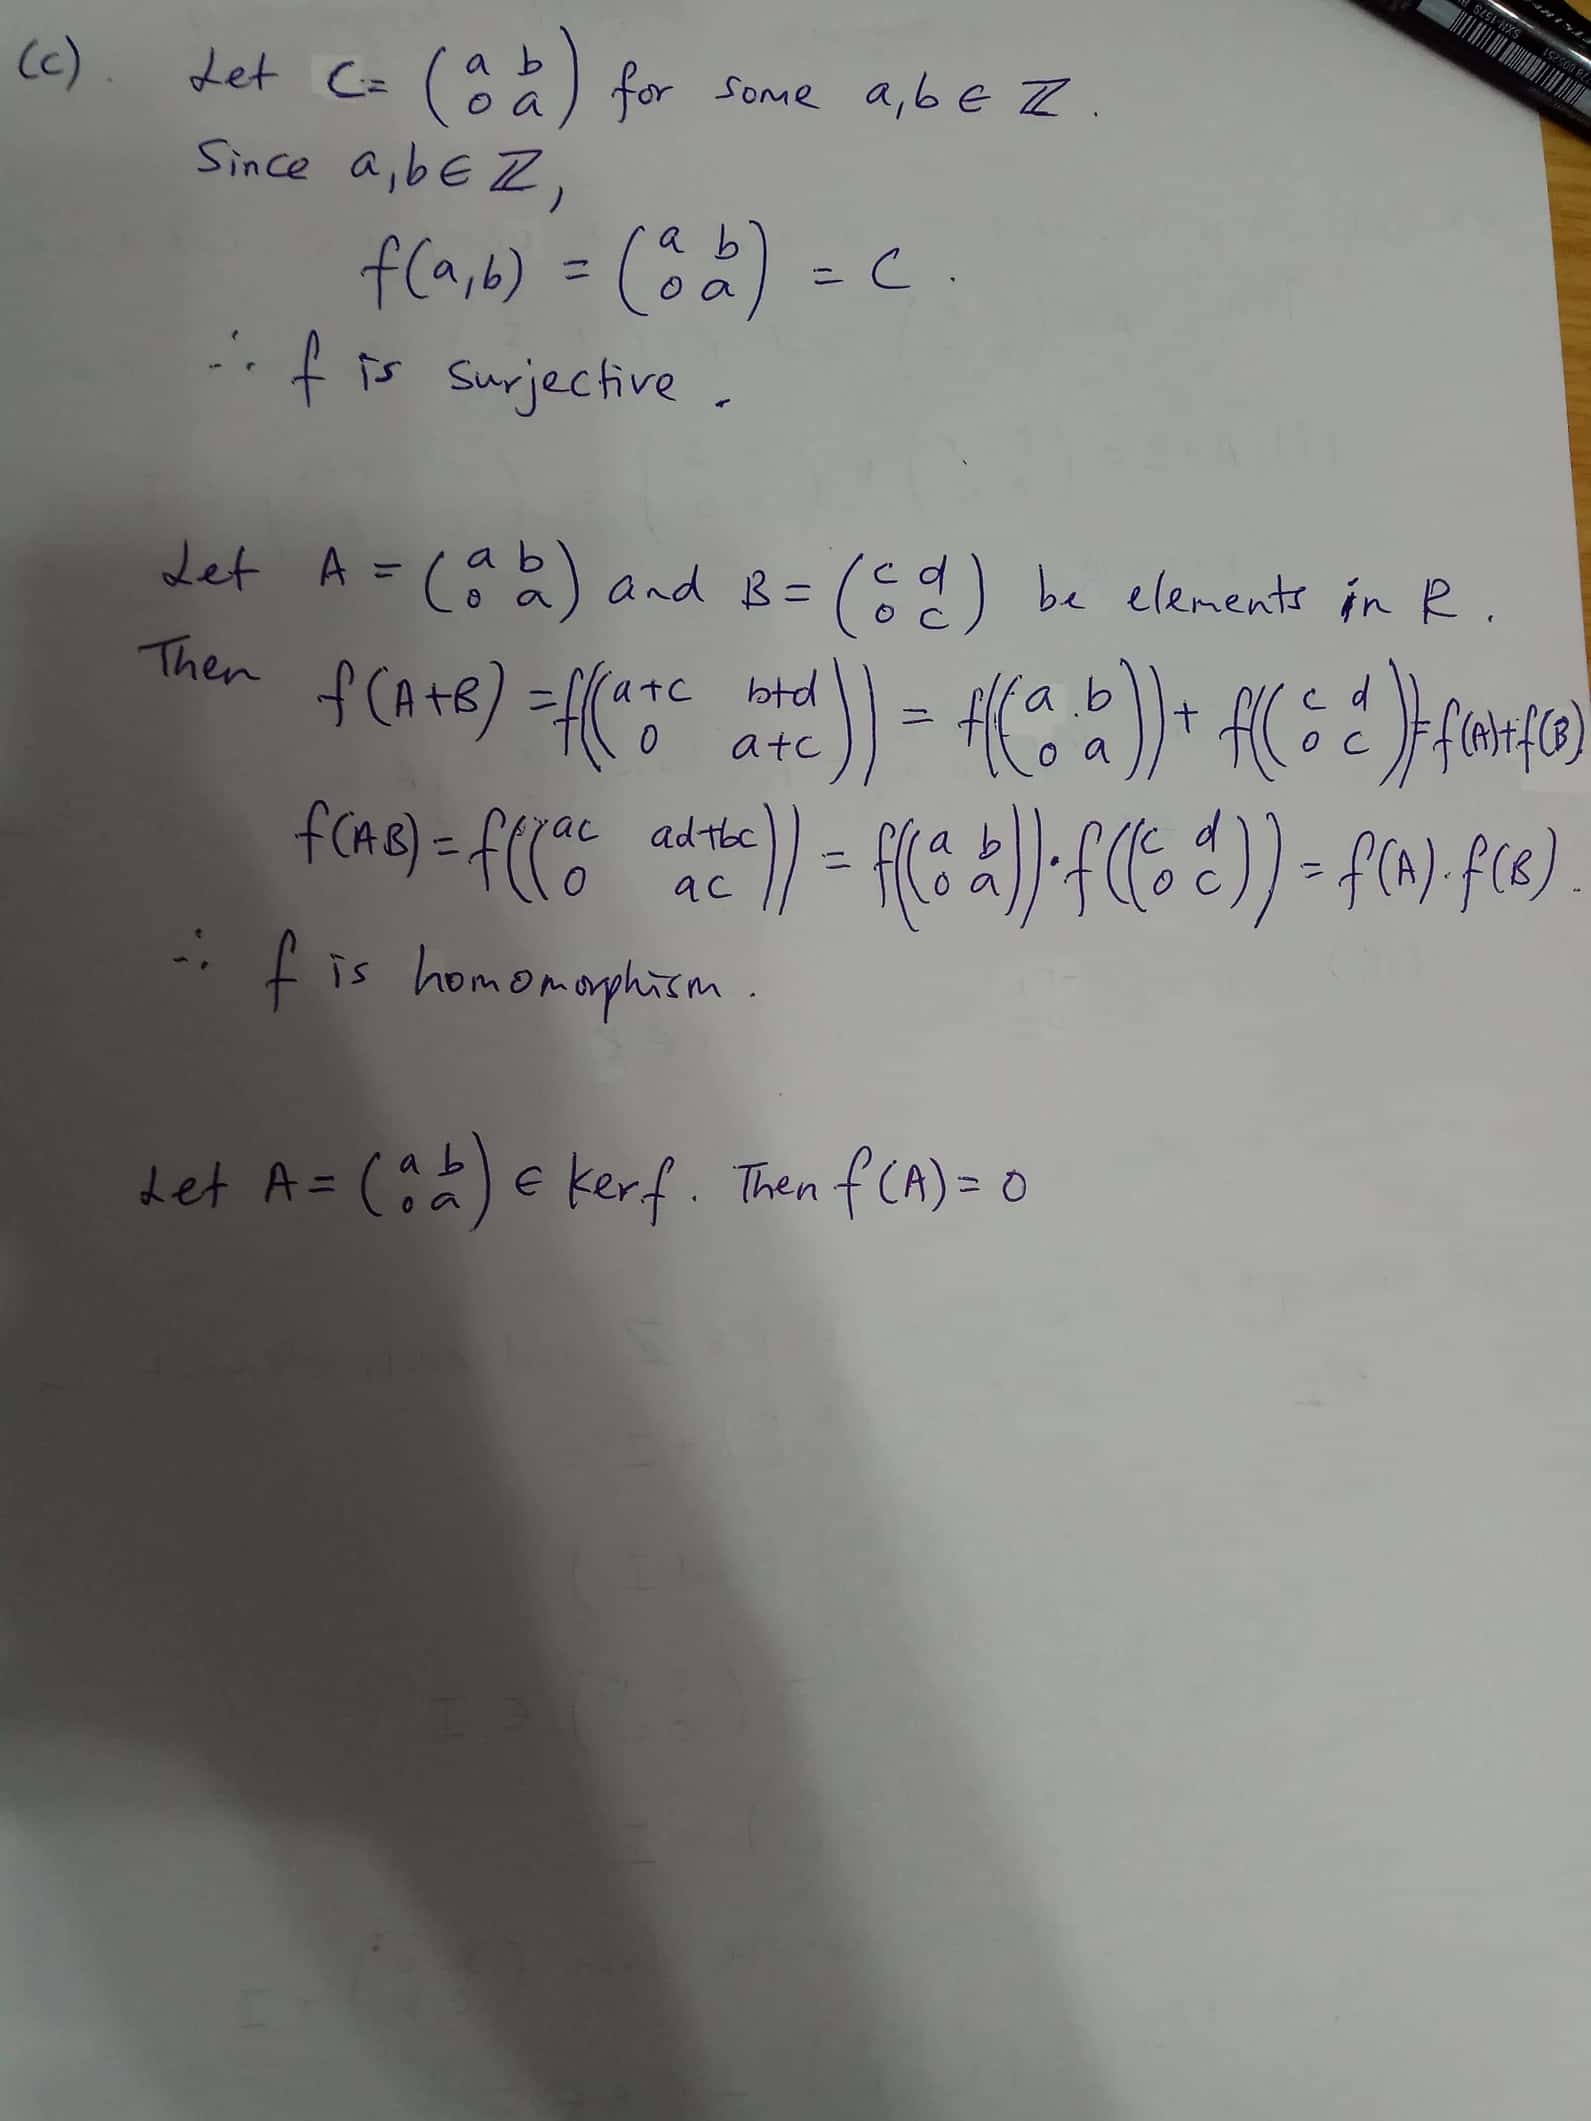 (c). Let C = (a b
0 a) for some a,b ∈ ℤ.
Since a,b ∈ ℤ,
f(a,b) = (a b
0 a) = C.
∴ f is surjective.
Let A = (a b
0 a) and B = (c d
0 c) be elements in R.
Then f(A+B) = f((a+c b+d
0 a+c)) = f((a b
0 a)) + f((c d
0 c)) = f(A)+f(B)
f(AB) = f((ac ad+bc
0 ac)) = f((a b
0 a))·f((c d
0 c)) = f(A)·f(B).
∴ f is homomorphism.
Let A = (a b
0 a) ∈ kerf. Then f(A) = 0